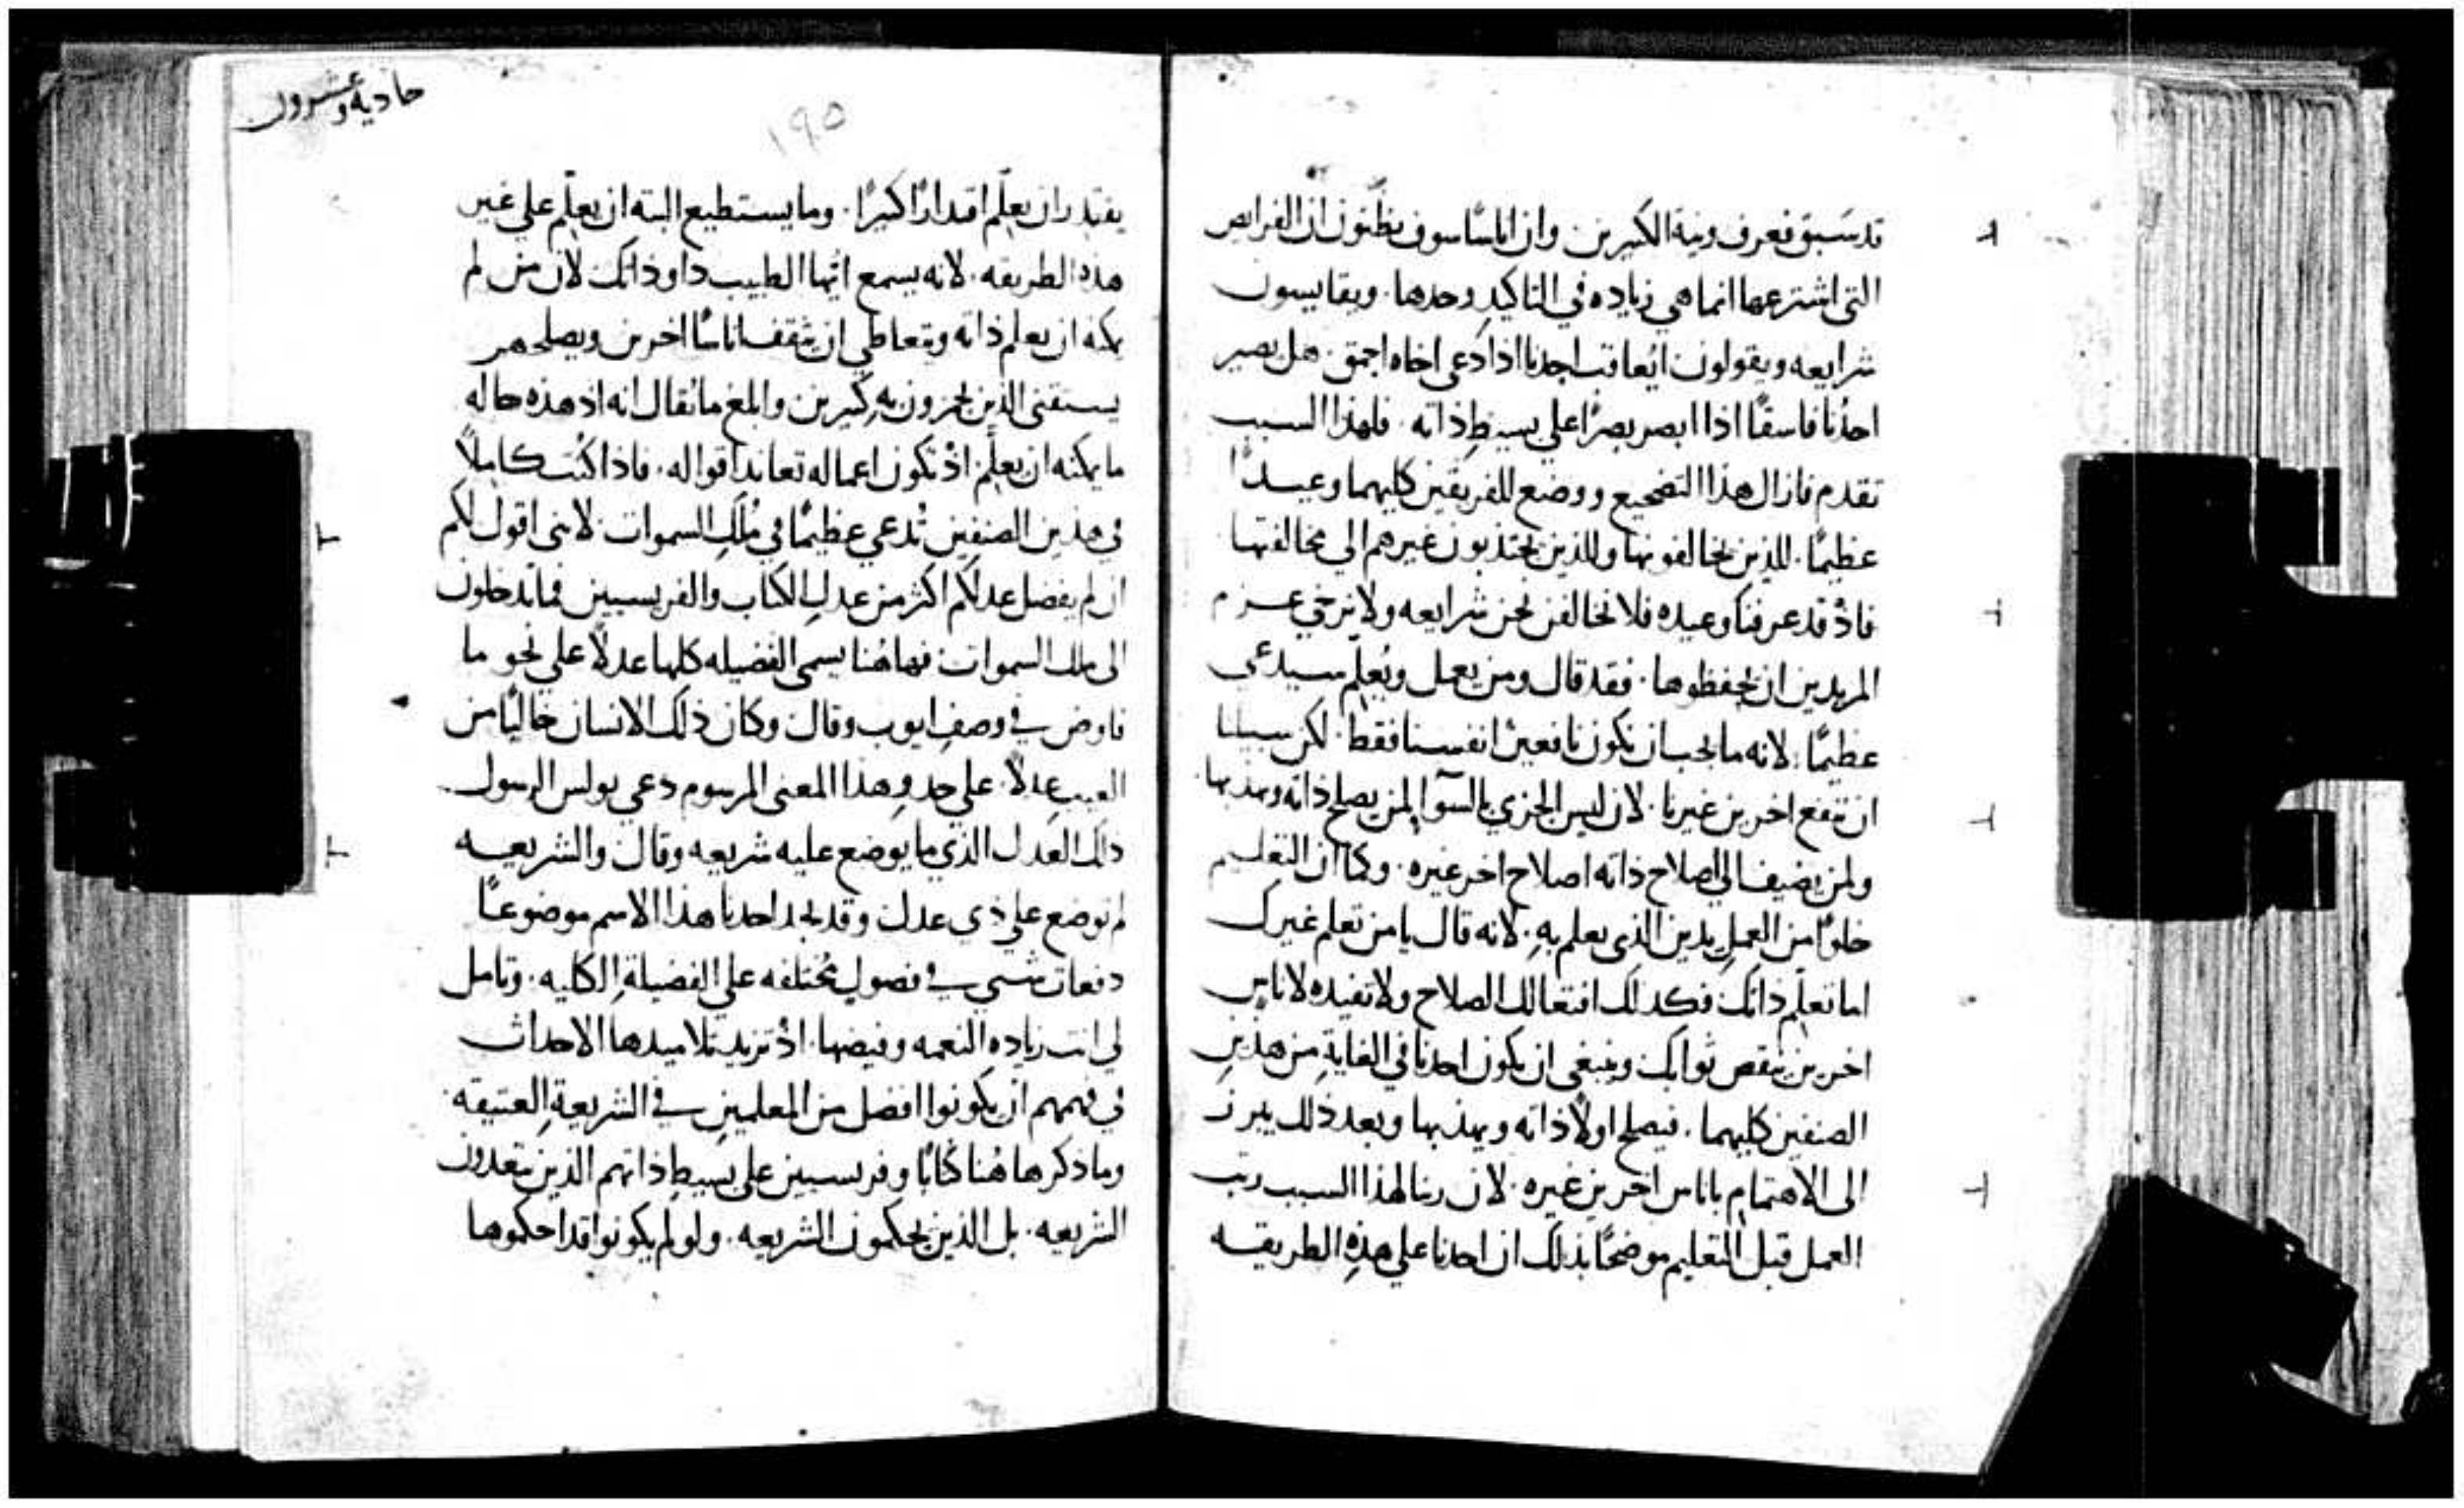 قد سَبق فعرف ونية الكثيرين وان اناسًا سوف يظنّون ان الفرايص
التي اشترعها انما هي زياده في التاكيدِ وحدها. ويقايسون
شرايعه ويقولون ايُعاقب احدنا اذا دعى اخاه احمق. هل يصير
احدُنا فاسقًا اذا ابصر بصرًا على بسيطِ ذاته. فلهذا السبب
تقدم فازال هذا التضجيع ووضع للفريقين كليهما وعيــدًا
عظيمًا. للذين يخالفونها وللذين يجتذبون غيرهم الى مخالفتها
فاذْ قد عرفنا وعيده فلا نخالفن نحن شرايعه ولا نرخي عــزم
المريدين ان يحفظوها. فقد قال ومن يعمل ويُعلّم سيدعى
عظيمًا. لانه ما يجب ان نكون نافعين انفسنا فقط. لكن سبيلنا
ان ننفع اخرين غيرنا. لان ليس الجزي بالسوآ لمن يصلح ذاته ويهذبها
ولمن يضيف الى اصلاح ذاته اصلاح اخر غيره. وكما ان التعليم
خلوًا من العملِ يدين الذى يعلم بهِ. لانه قال يا من تعلم غيرك
اما تعلّم ذاتك فكذلك افتعالك الصلاح ولا تفيده لاناسٍ
اخرين ينقص ثوابك وينبغي ان يكون احدنا في الغايةِ من هذينِ
الصنفين كليهما. فيصلح اولاً ذاته ويهذبها وبعد ذلك يبرز
الى الاهتمامِ باناس اخرين غيره. لان ربنا لهذا السبب رتب
العمل قبل التعليم موضحًا بذلك ان احدنا على هذهِ الطريقــه
حاديه وعشرون
١٩٥
يقتدر ان يعلّم اقتدارًا كثيرًا. وما يستطيع البته ان يعلّم على غير
هذه الطريقه. لانه يسمع ايّها الطبيب داو ذاتك لان من لم
يمكنه ان يعلم ذاته ويتعاطي ان يثقف اناسًا اخرين ويصلحهم
يستقني الذين يهزون به كثيرين وابلغ ما يُقال انه اذ هذه حاله
ما يمكنه ان يعلّم اذْ تكون اعماله تعاند اقواله. فاذا كُنت كاملاً
في هذين الصنفين تُدعى عظيمًا في مُلكِ السموات لانني اقول لكم
ان لم يفضل عدلكم اكثر من عدلِ الكتاب والفريسيين فما تدخلون
الى ملك السموات فهاهُنا يسمى الفضيله كلها عدلاً على نحو ما
فاوض في وصفِ ايوب وقال وكان ذلك الانسان خاليًا من
العيب عدلاً. على حدوِ هذا المعنى المرسوم دعى بولس الرسول
ذلك العدل الذي ما يوضع عليه شريعه وقال والشريعــه
لم توضع على ذي عدل وقد يجد احدنا هذا الاسم موضوعــًا
دفعات شتي في فصولٍ مختلفه على الفضيلةِ الكليه. وتامل
لي انت زياده النعمه وفيضها. اذْ تريد تلاميدها الاحداث
في فهمهم ان يكونوا افضل من المعلمينِ في الشريعةِ العتيقه
وما ذكر هاهُنا كُتّابًا وفريسيين على بسيطِ ذاتهم الذين يتعدون
الشريعه. بل الذين يحكمون الشريعه. ولو لم يكونوا قد احكموها